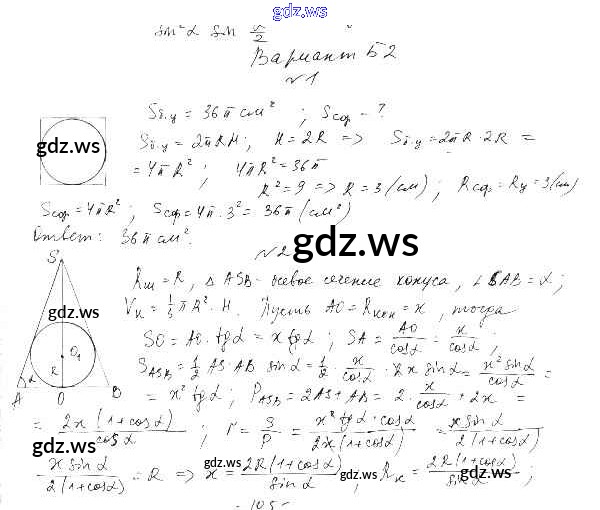 gdz.ws
sin²α sin α/2
Вариант Б2
№1
Sб.ц = 36π см² ; Sсф - ?
Sб.ц = 2πRH; H = 2R => Sб.ц = 2πR · 2R =
gdz.ws
= 4πR² ; 4πR² = 36π
R² = 9 => R = 3 (см) ; Rсф = Rц = 3 (см)
Sсф = 4πR² ; Sсф = 4π · 3² = 36π (см²)
Ответ: 36π см².
№2
gdz.ws
S
Rш = R, △ ASB - осевое сечение конуса, ∠SAB = α ;
Vк = 1/3 πR² · H. Пусть AO = Rкон = x, тогда
gdz.ws
SO = AO · tgα = x tgα ; SA = AO/cosα = x/cosα ;
O₁
R
SASB = 1/2 AS · AB sinα = 1/2 · x/cosα · 2x sinα = x² sinα/cosα =
α
A O B
= x² tgα ; PASB = 2AS + AB = 2 · x/cosα + 2x =
= 2x(1+cosα)/cosα ; r = S/P = x² tgα · cosα/2x(1+cosα) = x sinα/2(1+cosα)
gdz.ws
x sinα/2(1+cosα) = R => x = 2R(1+cosα)/sinα ; Rк = 2R(1+cosα)/sinα ;
gdz.ws gdz.ws
- 105 -
gdz.ws